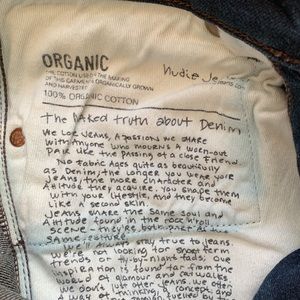 ORGANIC
THE COTTON USED IN THE MAKING
OF THIS GARMENT IS ORGANICALLY GROWN
AND HARVESTED
100% ORGANIC COTTON
Nudie Jeans
jeans co
The Naked truth about Denim
We LOVE JEANS, A PASSION WE SHARE
WITH ANYONE WHO MOURNS A WORN-OUT
PAIR LIKE THE PASSING OF A CLOSE FRIEND.
NO FABRIC AGES QUITE AS BEAUTIFULLY
AS DENIM, THE LONGER YOU WEAR YOUR
JEANS, THE MORE CHARACTER AND
ATTITUDE THEY ACQUIRE. YOU SHAPE THEM
WITH YOUR LIFESTYLE, AND THEY BECOME
LIKE A SECOND SKIN.
JEANS SHARE THE SAME SOUL AND
ATTITUDE FOUND IN THE ROCK'N'ROLL
SCENE – THEY'RE BOTH PART OF THE
SAME CULTURE.
WE'LL ALWAYS STAY TRUE TO JEANS
WE'RE NOT LOOKING FOR SHORT TERM
TRENDS OR FLY-BY-NIGHT-FADS; OUR
INSPIRATION IS FOUND FAR FROM THE
WORLD OF GLAMOUR AND CATWALKS
WE DON'T JUST OFFER JEANS, WE OFFER
A WAY OF THINKING, A CONCEPT AND